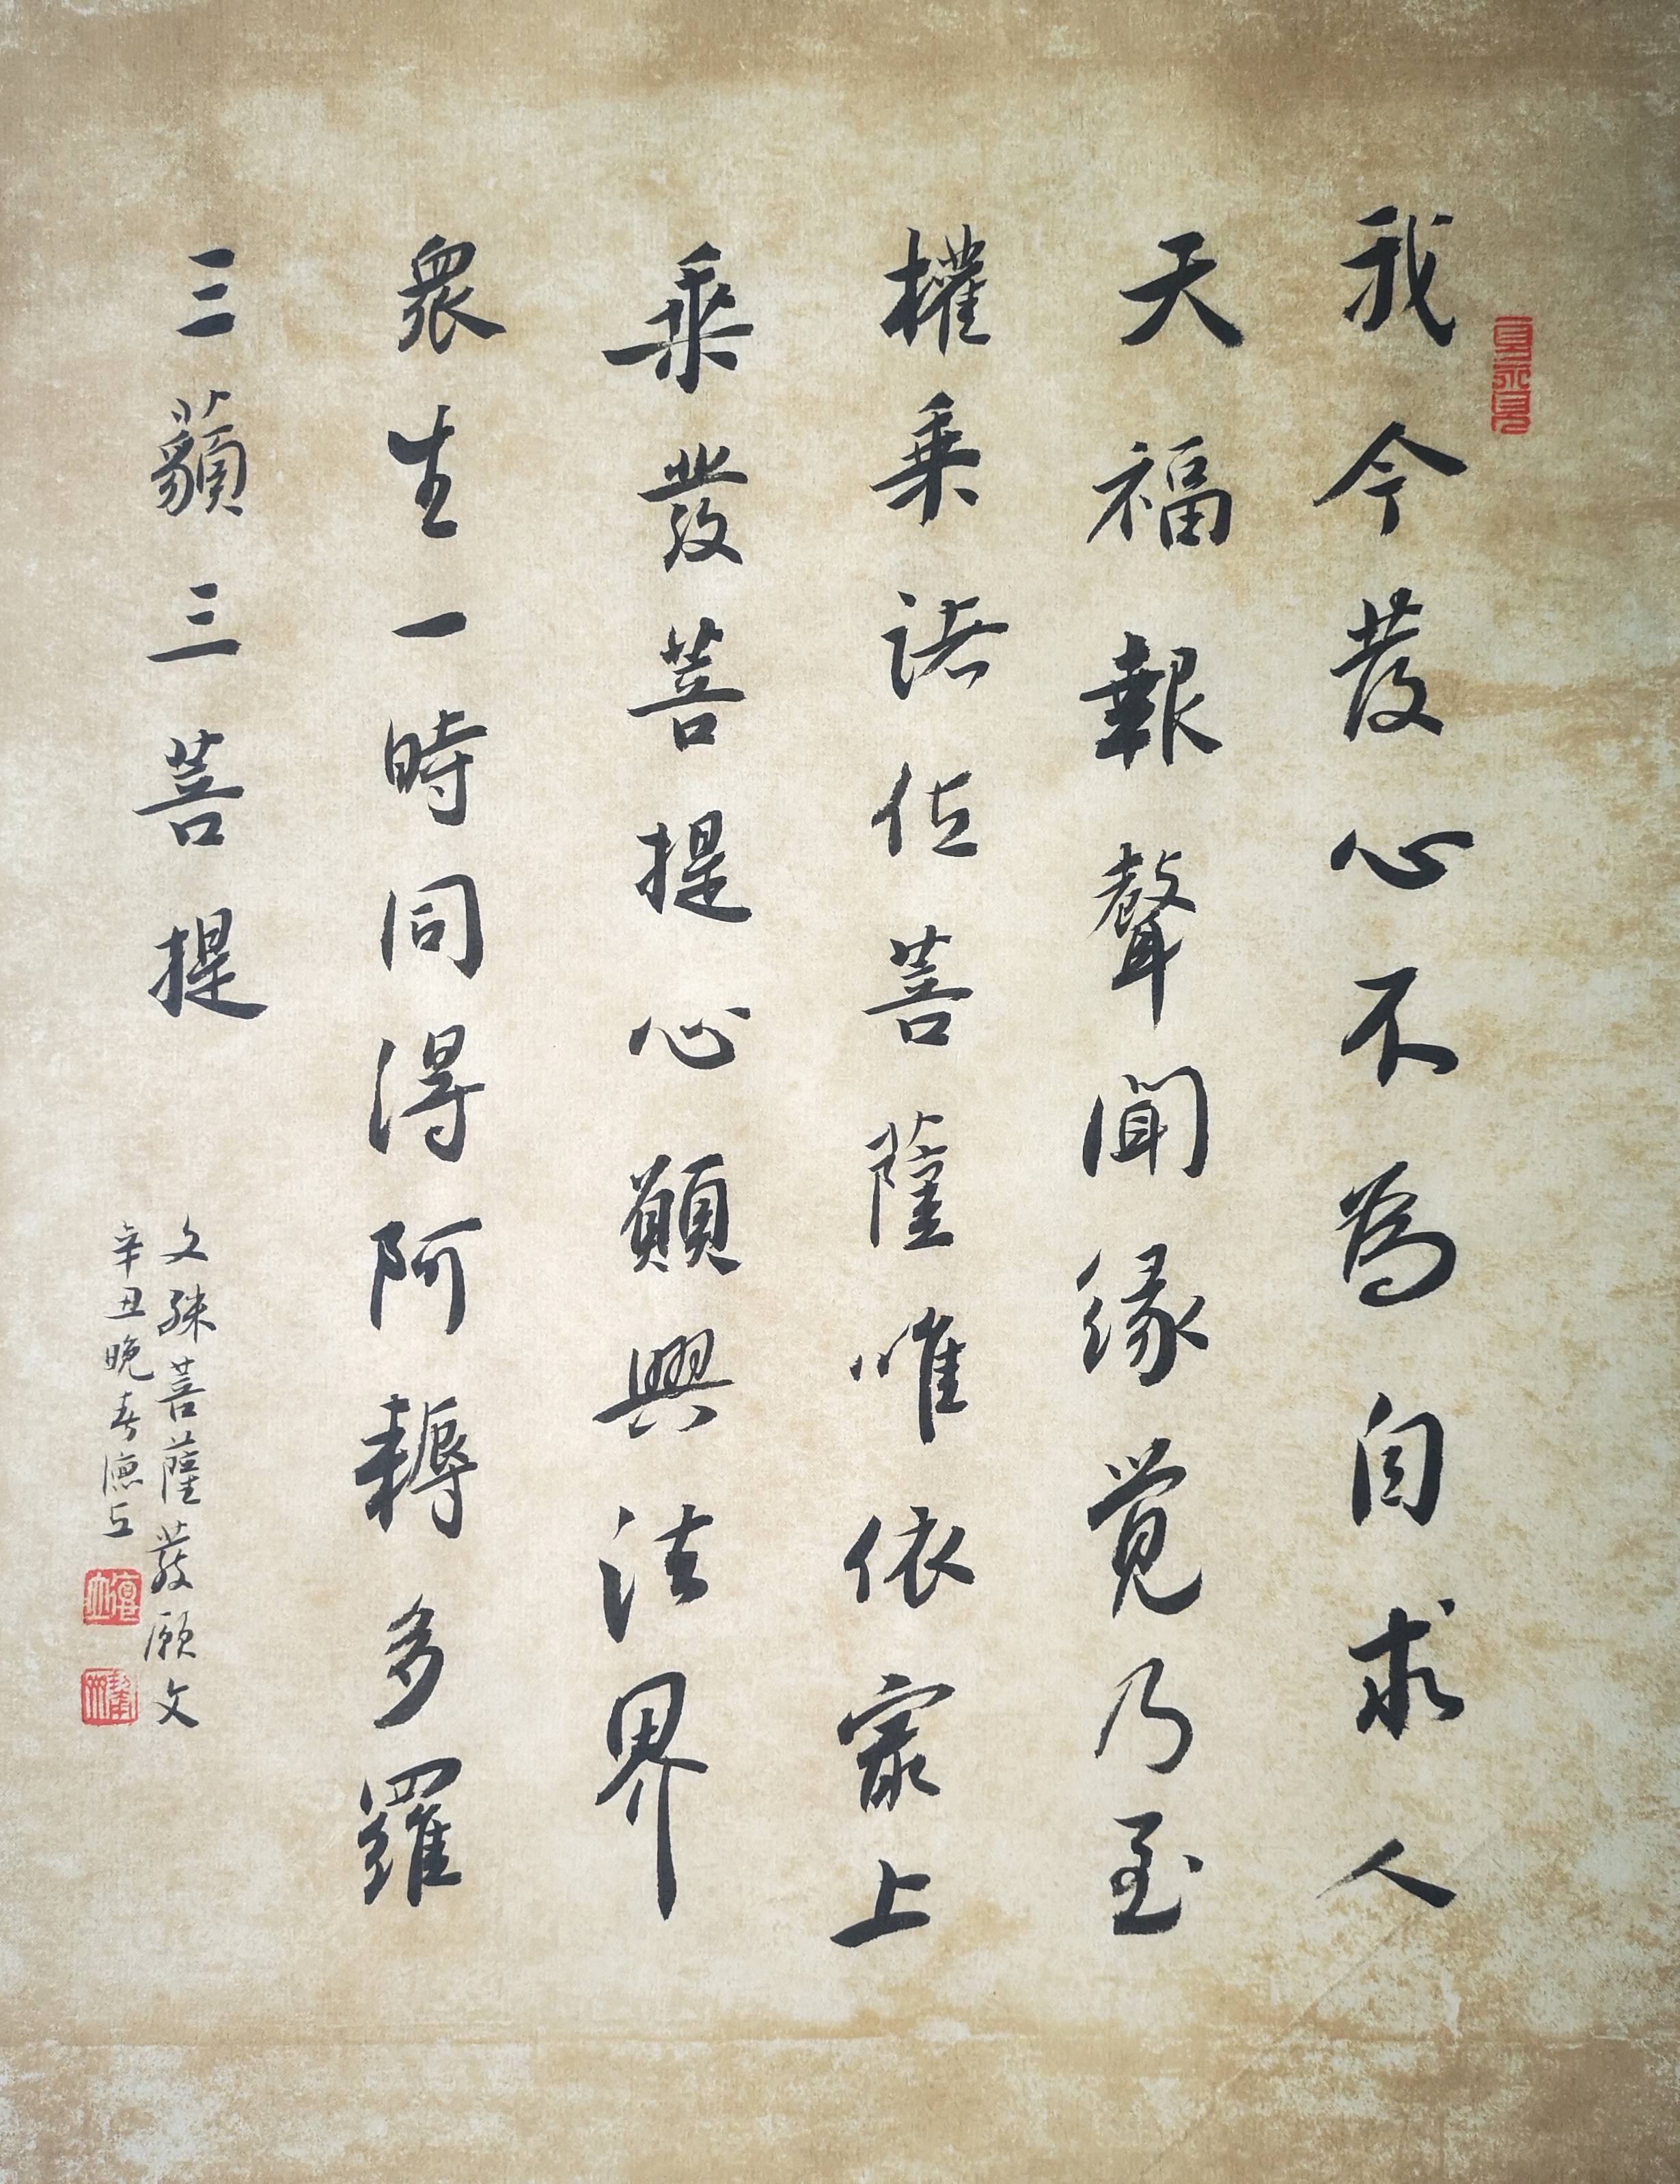 我今發心不為自求人
天福報聲聞緣覺乃至
權乘諸位菩薩唯依最上
乘發菩提心願與法界
眾生一時同得阿耨多羅
三藐三菩提
文殊菩薩發願文
辛丑晚春